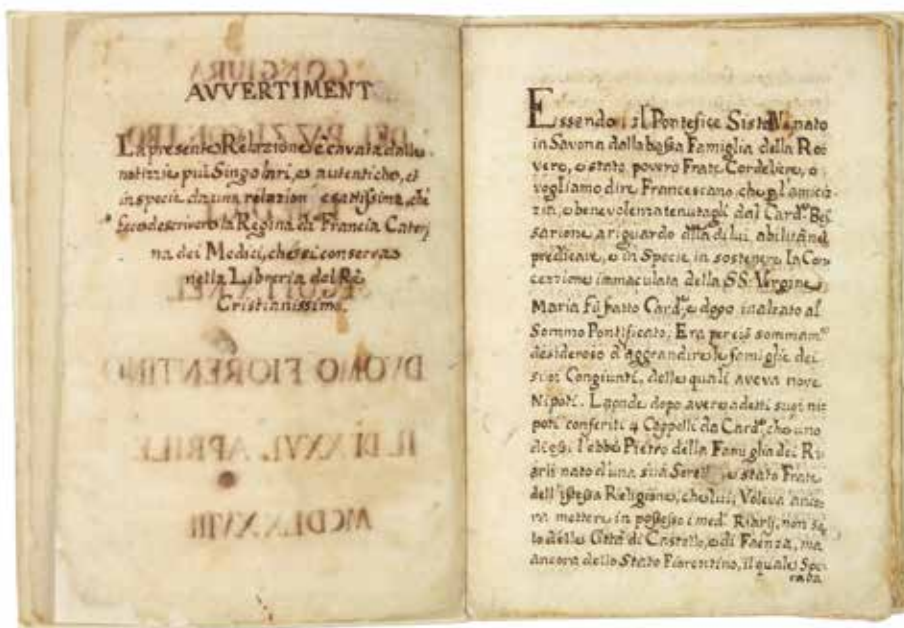 CONGIURA
AVVERTIMENT
La presente Relazione è cavata dalle
notizie più Singolari, e autentiche, et
in specie da una relazion esatissima, che
fece descrivere la Regina di Francia Cateri
na dei Medici, che si conserva
nella Libreria del Rè
Cristianissimo.
DVOMO FIORENTINO
IL DI XXVI. APRILE
MCDLXXVIII
Essendo il Pontefice Sisto IV. nato
in Savona dalla bassa Famiglia della Ro
vero, e stato povero Frate Cordeliere, o
vogliamo dire Francescano, che p l'amici
zia, e benevolenza tenutagli dal Card.e Bes
sarione a riguardo della di lui abilità nel
predicare, e in Specie in sostenere la Con
cezzione immaculata della SS. Vergine
Maria fù fatto Card.e, e dopo inalzato al
Sommo Pontificato. Era perciò sommam.te
desideroso d'aggrandire le famiglie dei
suoi Congiunti, delle quali aveva nove
Nipoti. Laonde dopo avere a detti suoi ni
poti conferiti 4 Cappelli da Card.e, che uno
di essi l'ebbe Pietro della Famiglia dei Ri
arii nato d'una sua Sorella, e stato Frate
dell'istessa Religione, che lui, Voleva anco
ra mettere in possesso i med.i Riarij, non so
lo delle Città di Castello, e di Faenza, ma
ancora dello Stato Fiorentino, il quale Spe
raba